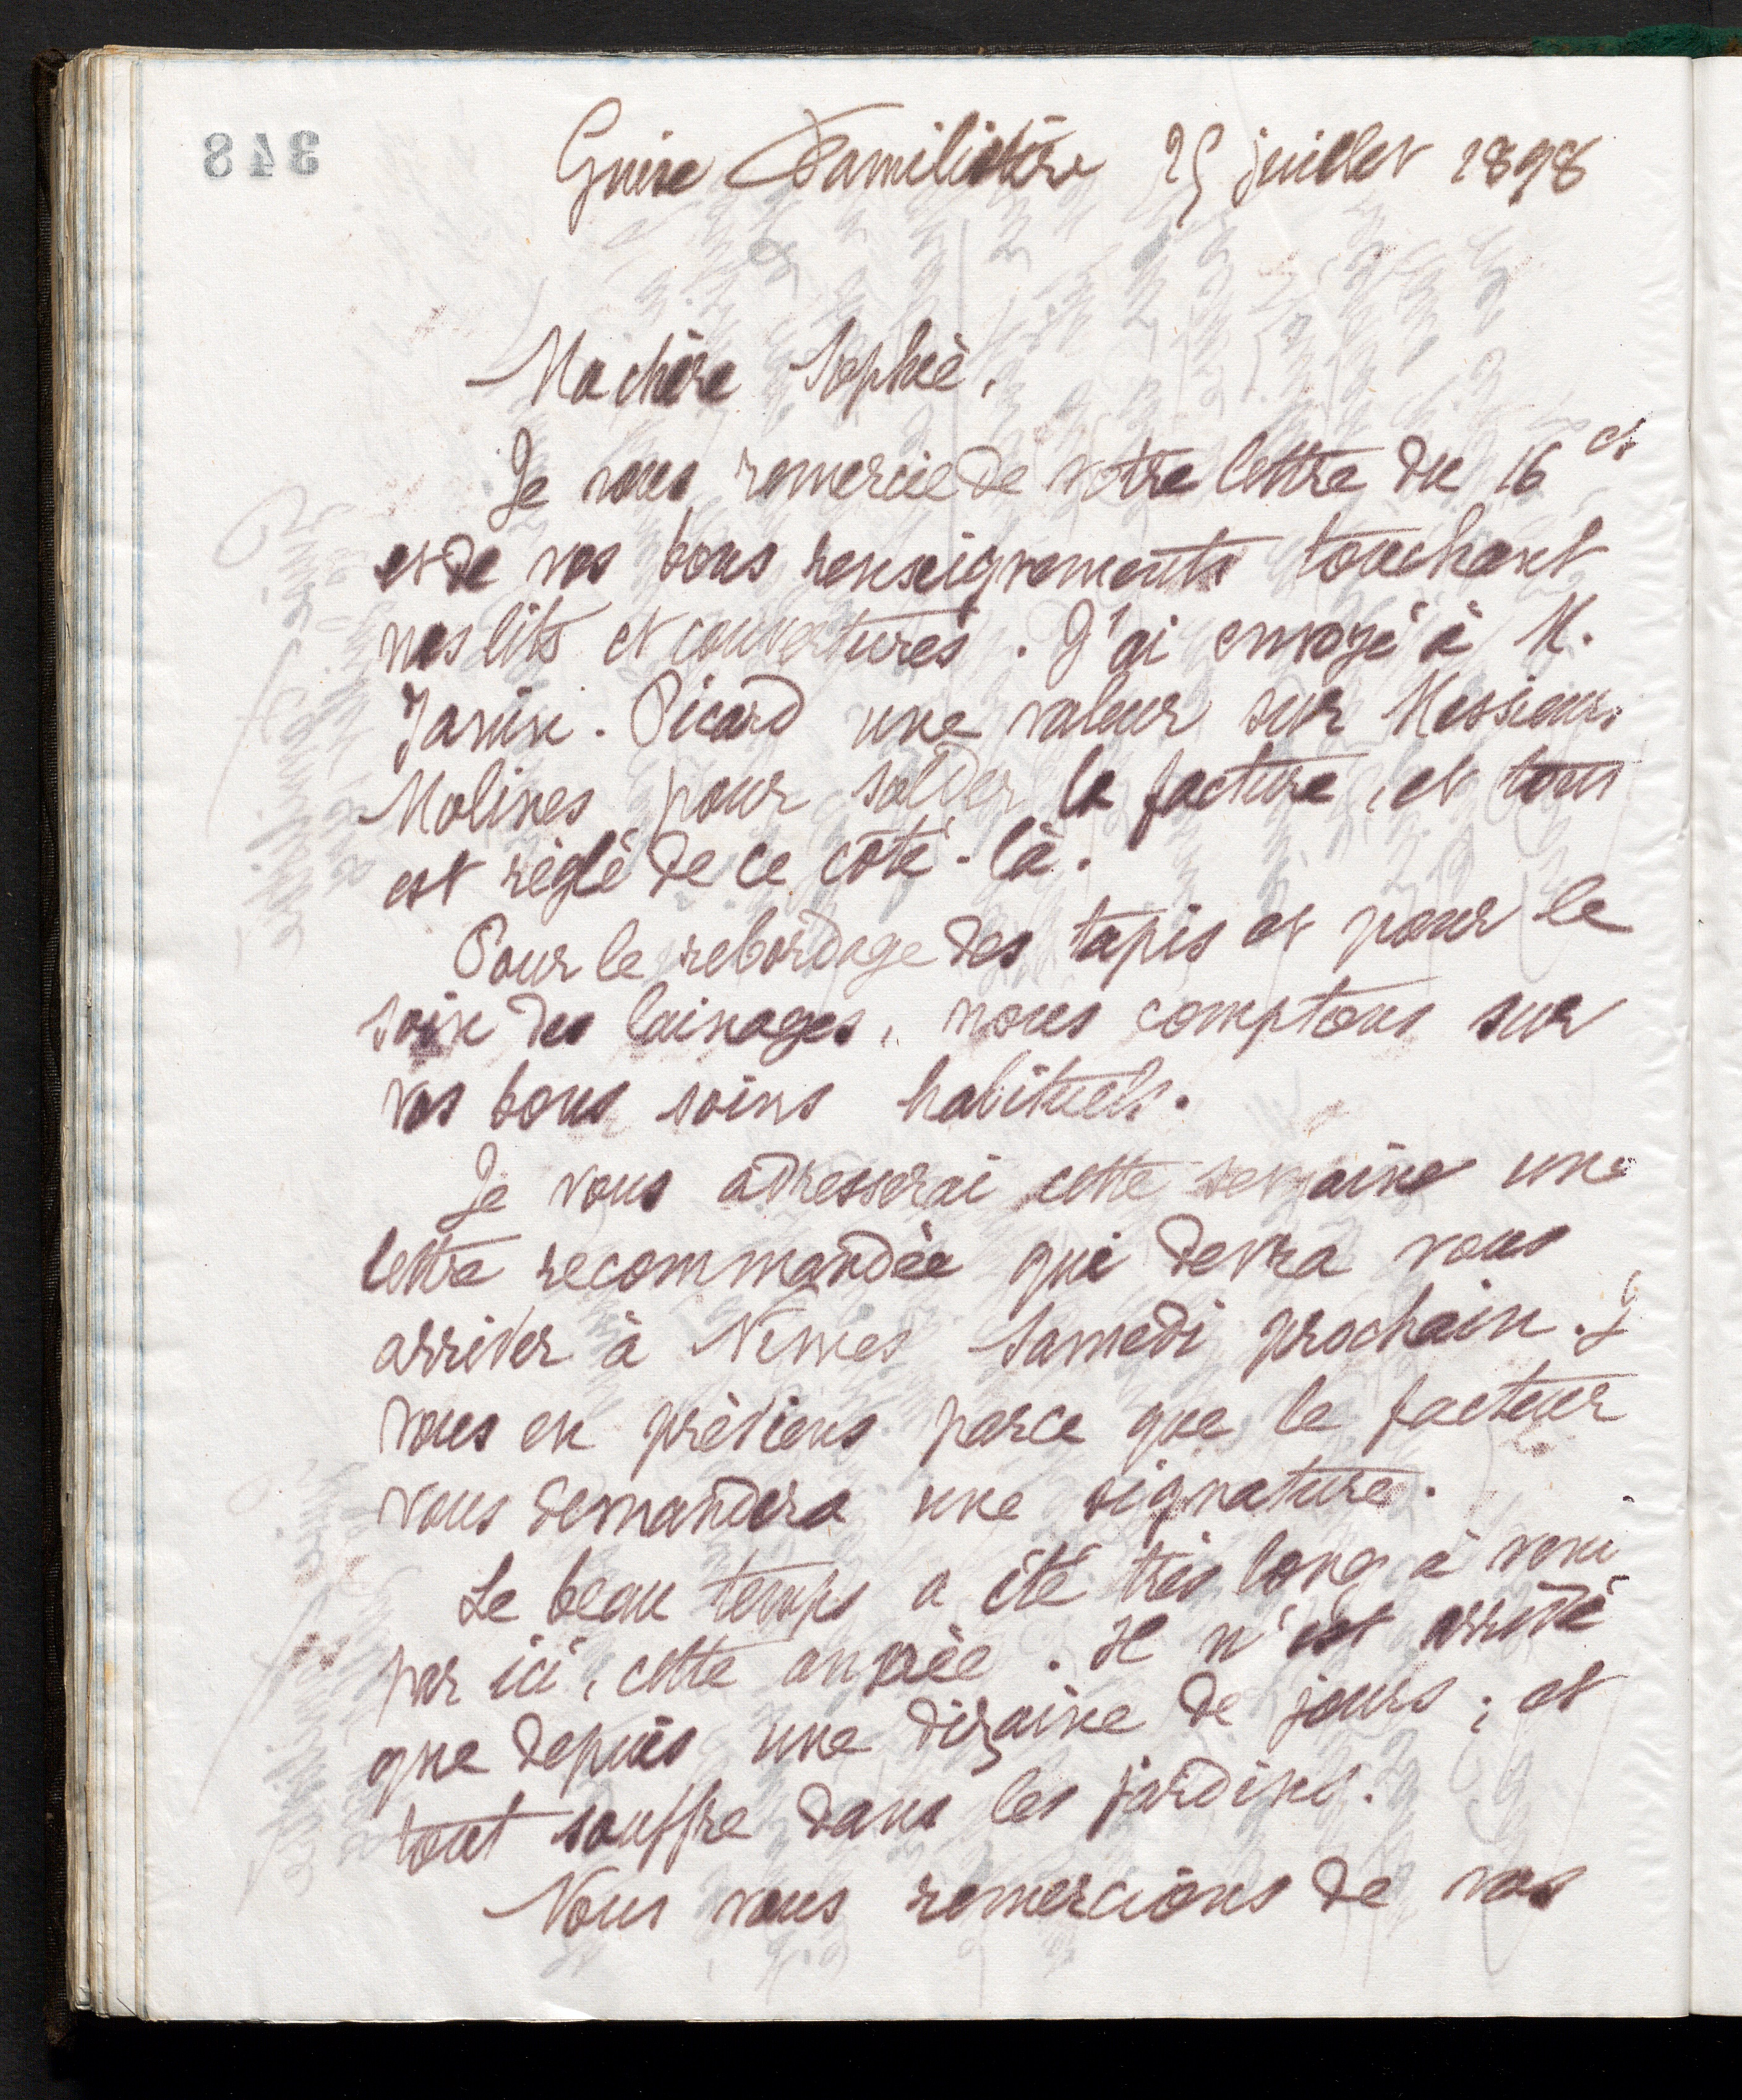 348
Guise Familistère 25 juillet 1898
Ma chère Sophie,
Je vous remercie de votre lettre du 16 ct
et de vos bons renseignements touchant
nos lits et couvertures. J'ai envoyé à M.
Janin-Picard une valeur sur Messieurs
Molines pour solder la facture, et tout
est réglé de ce côté-là.
Pour le rebordage des tapis et pour le
soin des lainages, nous comptons sur
vos bons soins habituels.
Je vous adresserai cette semaine une
lettre recommandée qui devra vous
arriver à Nîmes Samedi prochain. J
vous en préviens parce que le facteur
vous demandera une signature.
Le beau temps a été très long à veni
par ici, cette année. Il n'est arrivé
que depuis une dizaine de jours; et
tout souffre dans les jardins.
Nous vous remercions de vos